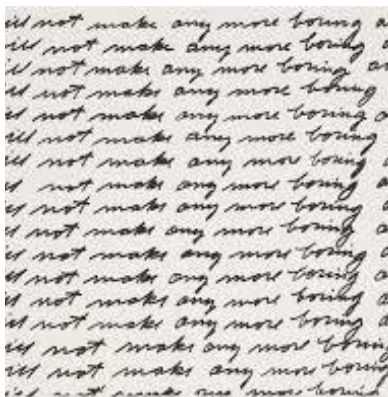 ill not make any more boring a
ill not make any more boring
ill not make any more boring ar
ill not make any more boring
ill not make any more boring a
ill not make any more boring
ill not make any more boring a
ll not make any more boring a
ill not make any more boring a
ill not make any more boring a
ill not make any more boring a
ill not make any more boring a
ill not make any more boring a
ill not make any more boring a
ill not make any more boring
ill not make any more boring
ill not make any more boring